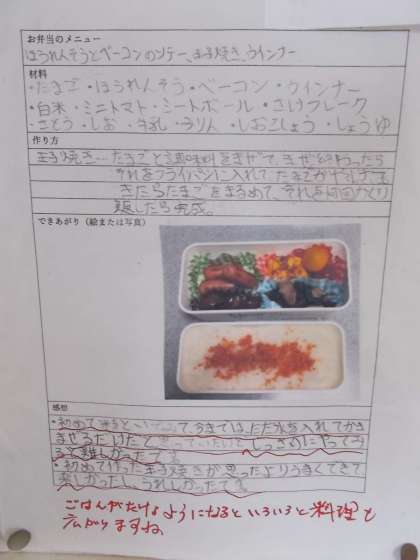 お弁当のメニュー
ほうれんそうとベーコンのソテー、玉子焼き、ウインナー
材料
・たまご・ほうれんそう・ベーコン・ウィンナー
・白米・ミニトマト・ミートボール・さけフレーク
・さとう・しお・牛乳・みりん・しおこしょう・しょうゆ
作り方
玉子焼き…たまごと調味料をまぜて、まぜ終わったら
それをフライパンに入れて たまごがやけて
きたらたまごをまるめて、それを何回かくり
返したら完成。
できあがり（絵または写真）
感想
・初めて米をといで 今までは、ただ水を入れてかき
まぜるだけだと思っていたけど じっさいにやってみ
ると難しかったです。
・初めて作った玉子焼きが思ったよりうまくできて
楽しかったし、うれしかったです。
ごはんがたけるようになるといろいろと料理も
広がりますね。